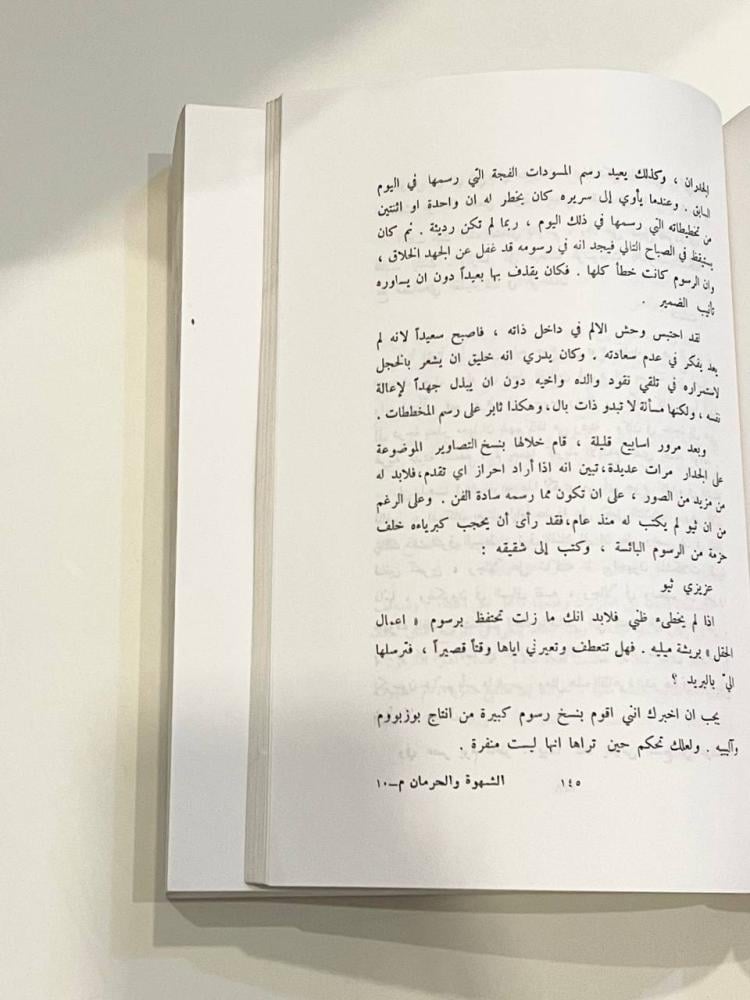 الجدران ، وكذلك يعيد رسم المسودات الفجة التي رسمها في اليوم
السابق . وعندما يأوي إلى سريره كان يخطر له ان واحدة او اثنتين
من تخطيطاته التي رسمها في ذلك اليوم ، ربما لم تكن رديئة . ثم كان
يستيقظ في الصباح التالي فيجد انه في رسومه قد غفل عن الجهد الخلاق ،
وان الرسوم كانت خطأ كلها . فكان يقذف بها بعيداً دون ان يساوره
تأنيب الضمير .
لقد احتبس وحش الالم في داخل ذاته ، فاصبح سعيداً لانه لم
يعد يفكر في عدم سعادته . وكان يدري انه خليق ان يشعر بالخجل
لاستمراره في تلقي نقود والده واخيه دون ان يبذل جهداً لإعالة
نفسه ، ولكنها مسألة لا تبدو ذات بال ، وهكذا ثابر على رسم المخططات .
وبعد مرور اسابيع قليلة ، قام خلالها بنسخ التصاوير الموضوعة
على الجدار مرات عديدة، تبين انه اذا أراد احراز اي تقدم،فلابد له
من مزيد من الصور ، على ان تكون مما رسمه سادة الفن . وعلى الرغم
من ان ثيو لم يكتب له منذ عام،فقد رأى أن يحجب كبرياءه خلف
حزمة من الرسوم البائسة ، وكتب إلى شقيقه :
عزيزي ثيو
اذا لم يخطىء ظني فلابد انك ما زلت تحتفظ برسوم « اعمال
الحقل » بريشة ميليه . فهل تتعطف وتعيرني اياها وقتاً قصيراً ، فترسلها
اليّ بالبريد ؟
يجب ان اخبرك انني اقوم بنسخ رسوم كبيرة من انتاج بوزبووم
وآليبيه . ولعلك تحكم حين تراها انها ليست منفرة .
١٤٥ الشهوة والحرمان م–١٠